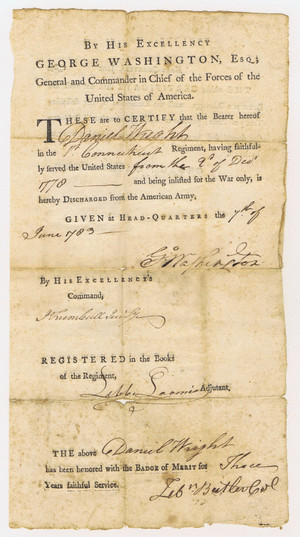 By His Excellency
GEORGE WASHINGTON, Esq;
General and Commander in Chief of the Forces of the
United States of America.
THESE are to CERTIFY that the Bearer hereof
Daniel Wright
in the 1st Connecticut Regiment, having faithful-
ly served the United States from the 2d of Decr
1778 and being inlisted for the War only, is
hereby DISCHARGED from the American Army.
GIVEN at HEAD-QUARTERS the 7th of
June 1783
Go Washington
By HIS EXCELLENCY'S
Command,
J Trumbull Jun
REGISTERED in the Books
of the Regiment,
Libbe Loomis Adjutant,
THE above Daniel Wright
has been honored with the BADGE of MERIT for Three
Years faithful Service. Zebn Butler Col